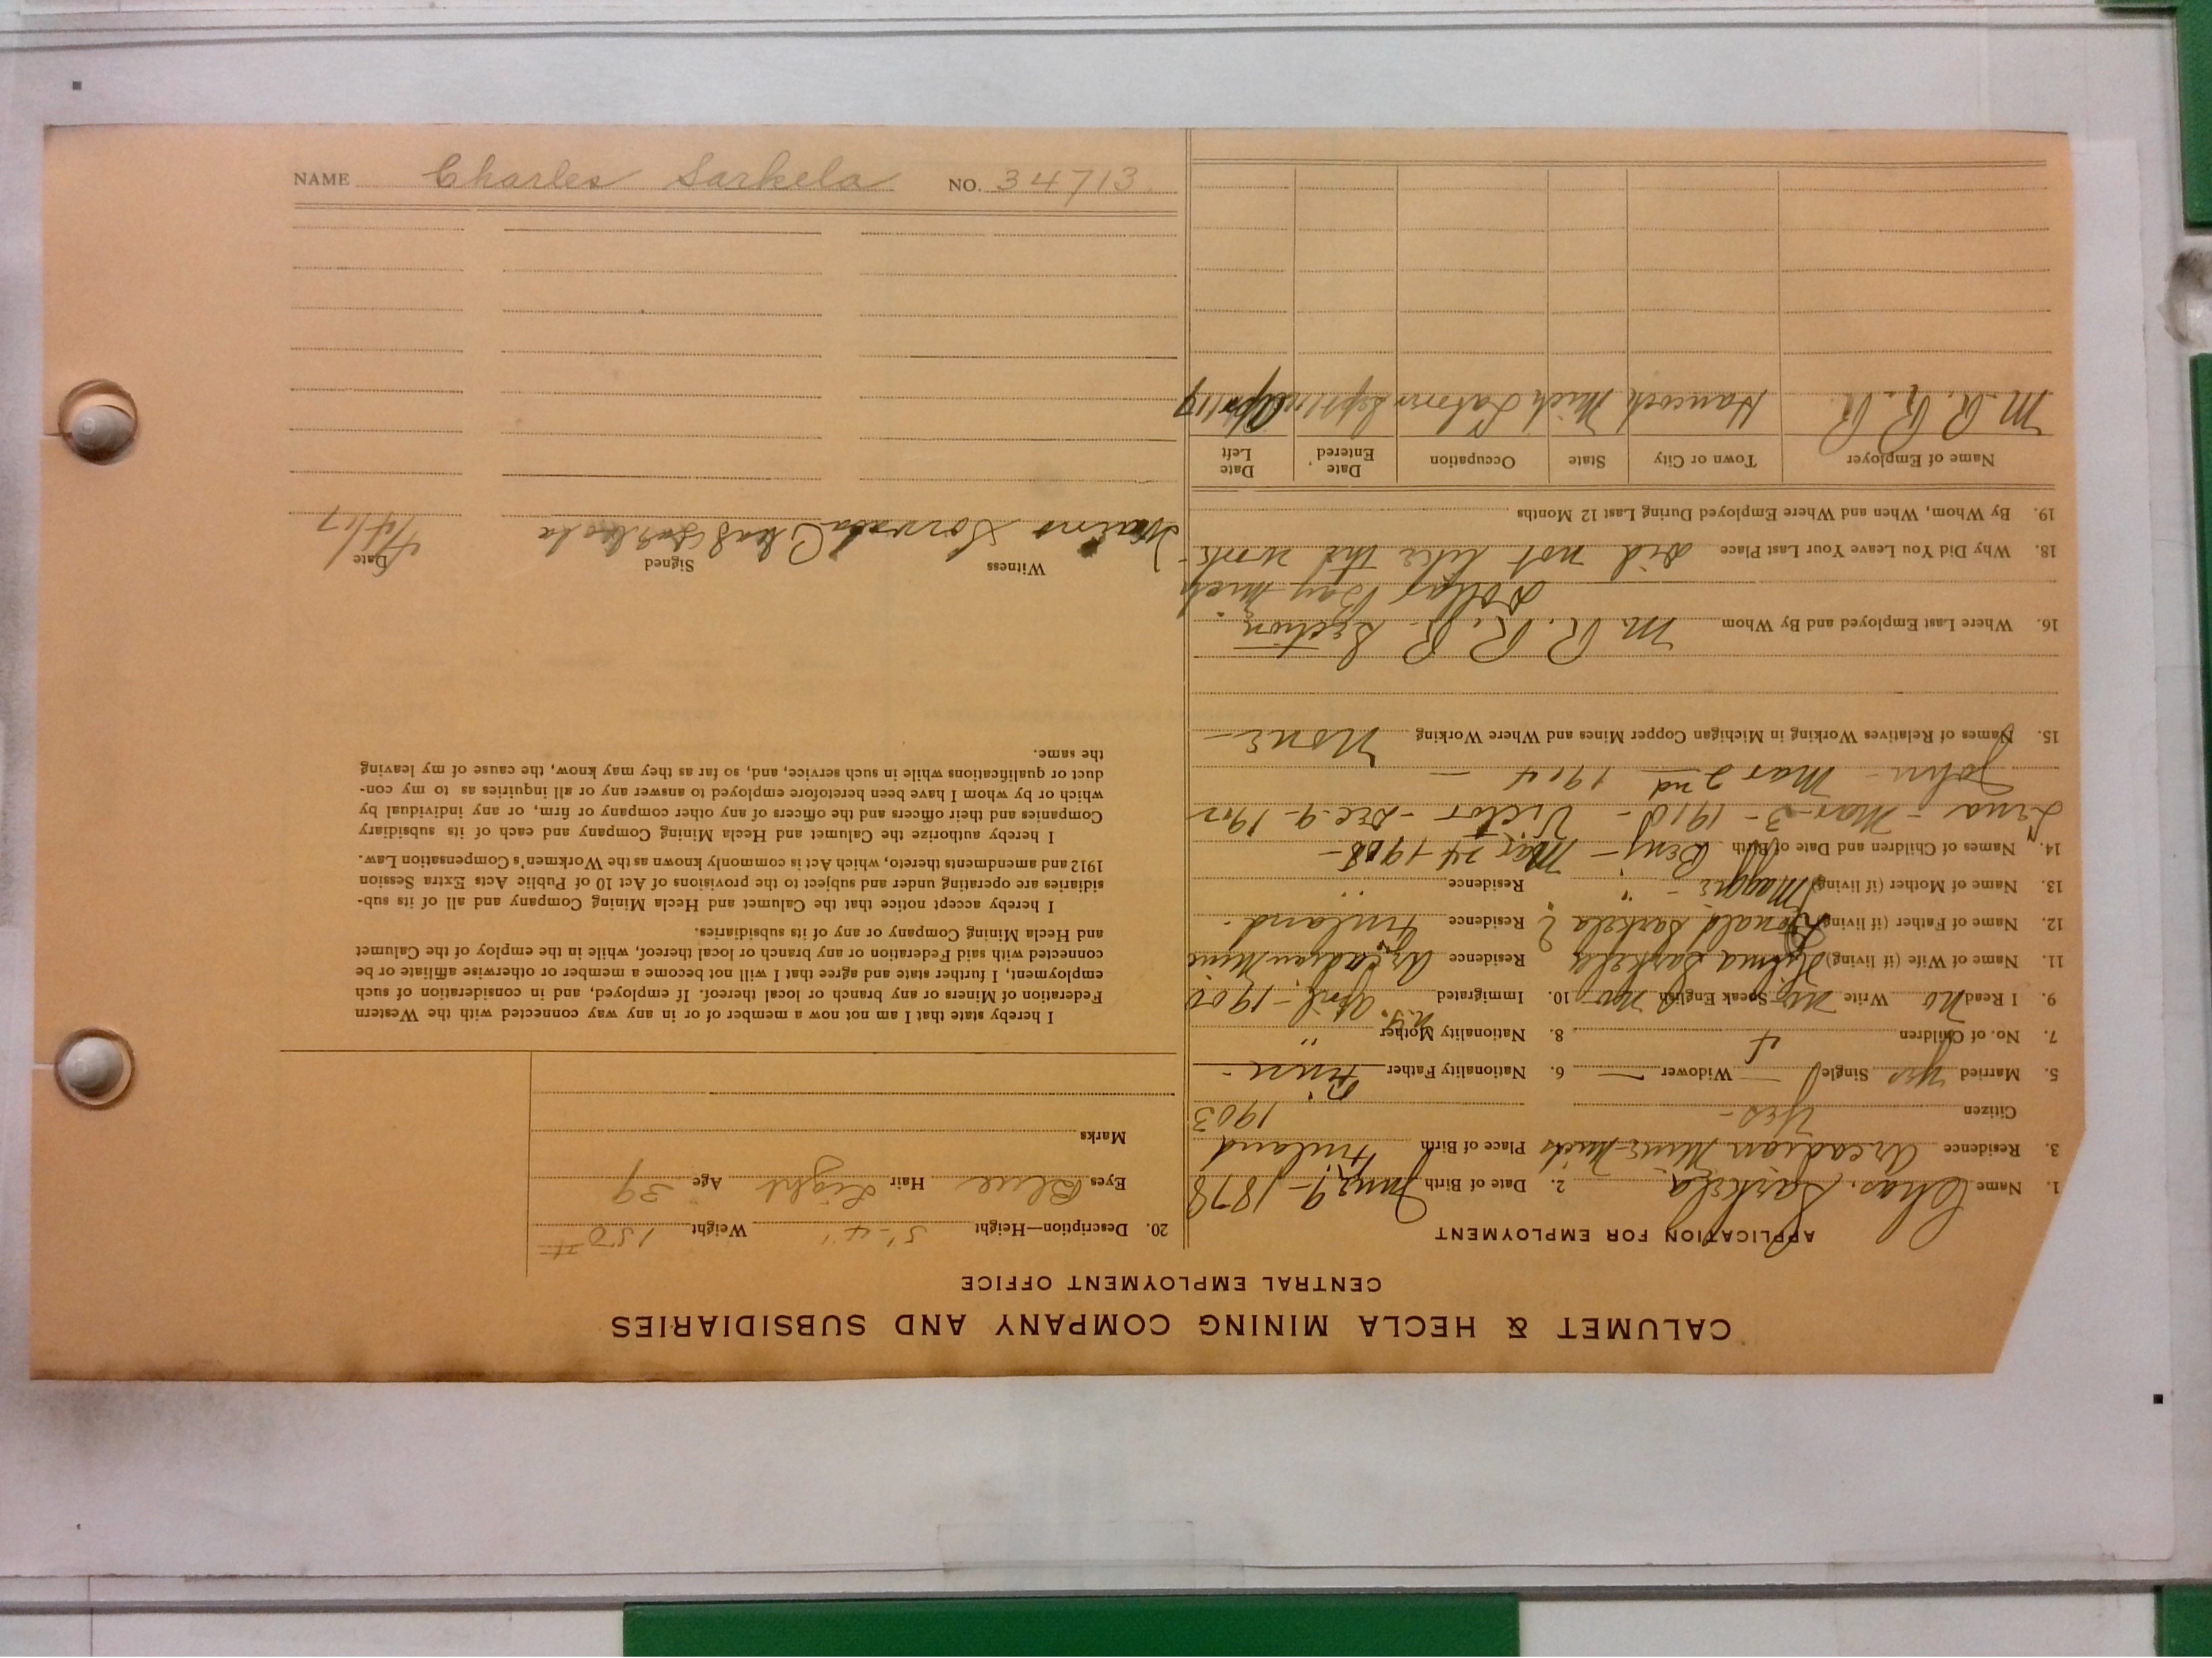 CALUMET & HECLA MINING COMPANY AND SUBSIDIARIES
CENTRAL EMPLOYMENT OFFICE
APPLICATION FOR EMPLOYMENT
1. Name Chas. Sarkela 2. Date of Birth June 9 - 1878
3. Residence Arcadian Mine - Mich Place of Birth Finland
Citizen Yes - 1903
5. Married yes Single — Widower — 6. Nationality Father Finn -
7. No. of Children 4 8. Nationality Mother "
9. I Read No Write No Speak English No 10. Immigrated April - 1900
11. Name of Wife (if living) Hilma Sarkela Residence Arcadian Mine
12. Name of Father (if living) Sarkela Residence Finland -
13. Name of Mother (if living) Maggie - " Residence "
14. Names of Children and Date of Birth Benj - Mar 24 - 1908 -
Lena - Mar - 3 - 1910 - Victor - Dec. 9 - 1902
John - Mar 2nd 1904 -
15. Names of Relatives Working in Michigan Copper Mines and Where Working None -
16. Where Last Employed and By Whom M. R. R. R. Section
Dollar Bay Mich
18. Why Did You Leave Your Last Place Did not like the work -
19. By Whom, When and Where Employed During Last 12 Months
Name of Employer Town or City State Occupation Date Entered Date Left
M. R. R. R. Hancock Mich Labor Sept Apr 1/17
20. Description—Height 5'-4" Weight 150 #
Eyes Blue Hair Light Age 39
Marks
I hereby state that I am not now a member of or in any way connected with the Western
Federation of Miners or any branch or local thereof. If employed, and in consideration of such
employment, I further state and agree that I will not become a member or otherwise affiliate or be
connected with said Federation or any branch or local thereof, while in the employ of the Calumet
and Hecla Mining Company or any of its subsidiaries.
I hereby accept notice that the Calumet and Hecla Mining Company and all of its sub-
sidiaries are operating under and subject to the provisions of Act 10 of Public Acts Extra Session
1912 and amendments thereto, which Act is commonly known as the Workmen's Compensation Law.
I hereby authorize the Calumet and Hecla Mining Company and each of its subsidiary
Companies and their officers and the officers of any other company or firm, or any individual by
which or by whom I have been heretofore employed to answer any or all inquiries as to my con-
duct or qualifications while in such service, and, so far as they may know, the cause of my leaving
the same.
Witness Signed Date
Waino Chas Sarkela 4/4/17
NAME Charles Sarkela NO. 34713